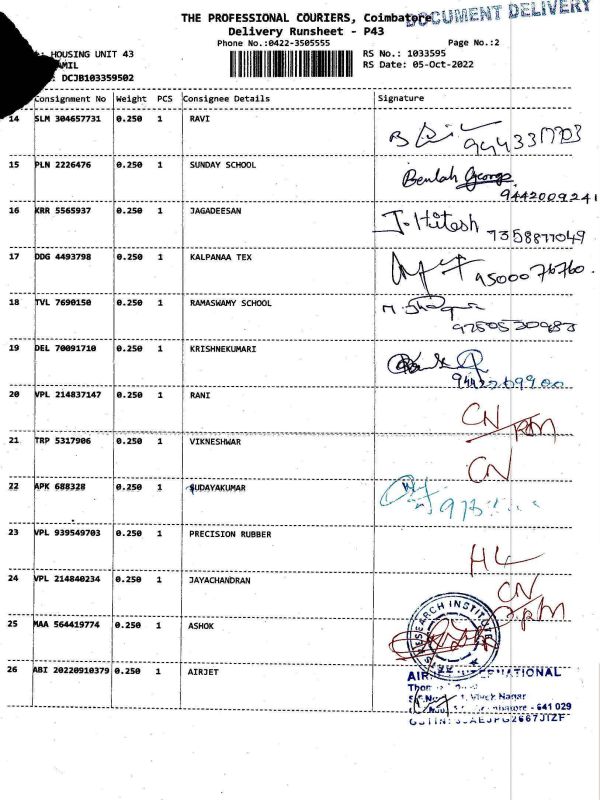 THE PROFESSIONAL COURIERS, Coimbatore
DOCUMENT DELIVERY
Delivery Runsheet - P43
Phone No.:0422-3505555 Page No.:2
: HOUSING UNIT 43 RS No.: 1033595
AMIL RS Date: 05-Oct-2022
: DCJB103359502
Consignment No Weight PCS Consignee Details Signature
14 SLM 304657731 0.250 1 RAVI
15 PLN 2226476 0.250 1 SUNDAY SCHOOL Beulah George
9442009241
16 KRR 5565937 0.250 1 JAGADEESAN J. Hitesh 7358877049
17 DDG 4493798 0.250 1 KALPANAA TEX 9500076760.
18 TVL 7690150 0.250 1 RAMASWAMY SCHOOL
19 DEL 70091710 0.250 1 KRISHNEKUMARI
20 VPL 214837147 0.250 1 RANI CN
21 TRP 5317906 0.250 1 VIKNESHWAR CN
22 APK 688328 0.250 1 SUDAYAKUMAR
23 VPL 939549703 0.250 1 PRECISION RUBBER HL
24 VPL 214840234 0.250 1 JAYACHANDRAN CN
25 MAA 564419774 0.250 1 ASHOK
RESEARCH INSTITUTE
26 ABI 20220910379 0.250 1 AIRJET
INTERNATIONAL
Vivek Nagar
641 029